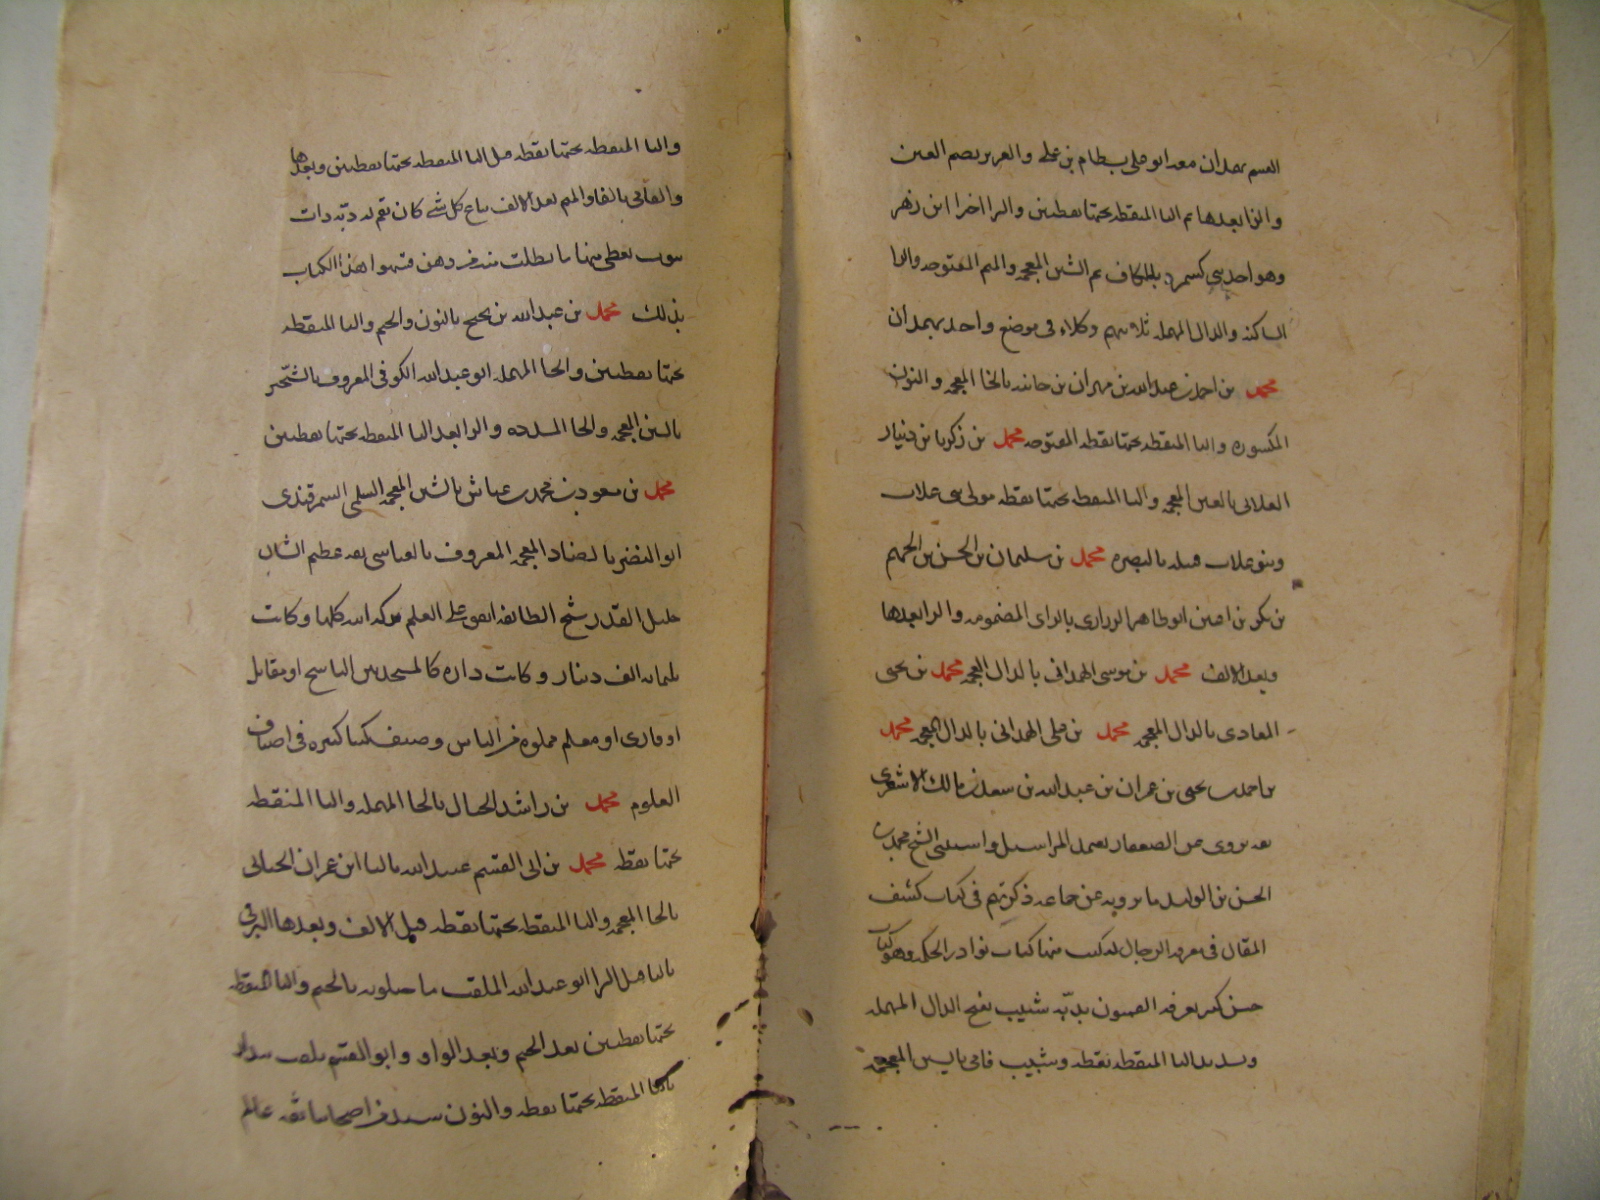 القسم بهمدان معه ابو على بسطام بن على والعزير بضم العين
والزا بعدها ثم اليا المنقطه تحتها نقطتين والرا اخرا ابن زهر
وهو احد بنى كسمرد بالكاف ثم الشين المعجمه والميم المفتوحه واليا
الساكنه والدال المهمله ثلاثتهم وكلاء فى موضع واحد بهمدان
محمد بن احمد بن عبد الله بن مهران بن خانبه بالخا المعجمه والنون
المكسوره والبا المنقطه تحتها نقطه المفتوحه محمد بن زكريا بن دينار
الغلابى بالغين المعجمه والبا المنقطه تحتها نقطه مولى بنى غلاب
وبنو غلاب قبيله بالبصره محمد بن سليمان بن الحسن بن الجهم
بن بكير بن اعين ابو طاهر الزرارى بالزاى المضمومه والرا بعدها
وبعد الالف محمد بن موسى الهمدانى بالدال المعجمه محمد بن يحيى
المعاذى بالدال المعجمه محمد بن على الهمدانى بالدال المعجمه محمد
بن احمد بن يحيى بن عمران بن عبد الله بن سعد بن مالك الاشعرى
ثقه يروى عن الضعفاء ويعتمد المراسيل واستثنى الشيخ محمد بن
الحسن بن الوليد ما يرويه عن جماعه ذكرتهم فى كتاب كشف
المقال فى معرفه الرجال له كتب منها كتاب نوادر الحكمه وهو كتاب
حسن كبير يعرفه القميون بدبّه شبيب بفتح الدال المهمله
وتشديد البا المنقطه نقطه وشبيب فامى بالشين المعجمه
والبا المنقطه تحتها نقطه قبل اليا المنقطه تحتها نقطتين وبعدها
والفامى بالفا والميم بعد الالف بياع كل شى كان بقم له دبّه ذات
بيوت يعطى منها ما يطلب منه من دهن فشبهوا هذا الكتاب
بذلك محمد بن عبد الله بن نجيح بالنون والجيم واليا المنقطه
تحتها نقطتين والحا المهمله ابو عبد الله الكوفى المعروف بالشخير
بالشين المعجمه والخا المشدده والرا بعد اليا المنقطه تحتها نقطتين
محمد بن مسعود بن محمد بن عياش بالشين المعجمه السلمى السمرقندى
ابو النضر بالضاد المعجمه المعروف بالعياشى ثقه عظيم الشان
جليل القدر شيخ الطايفه انفق على العلم تركه ابيه كلها وكانت
ثلثمايه الف دينار وكانت داره كالمسجد بين ناسخ او مقابل
او قارى او معلم مملوه من الناس وصنف كتبا كثيره فى اصناف
العلوم محمد بن راشد الحبال بالحا المهمله والبا المنقطه
تحتها نقطه محمد بن ابى القسم عبيد الله باليا ابن عمران الخبابى
بالخا المعجمه والبا المنقطه تحتها نقطه قبل الالف وبعدها البرقى
بالبا قبل الرا ابو عبد الله الملقب ماجيلويه بالجيم واليا المنقطه
تحتها نقطتين بعد الجيم وبعد الواو وابو القسم يلقب بندار
بالبا المنقطه تحتها نقطه والنون سيد من اصحابنا ثقه عالم